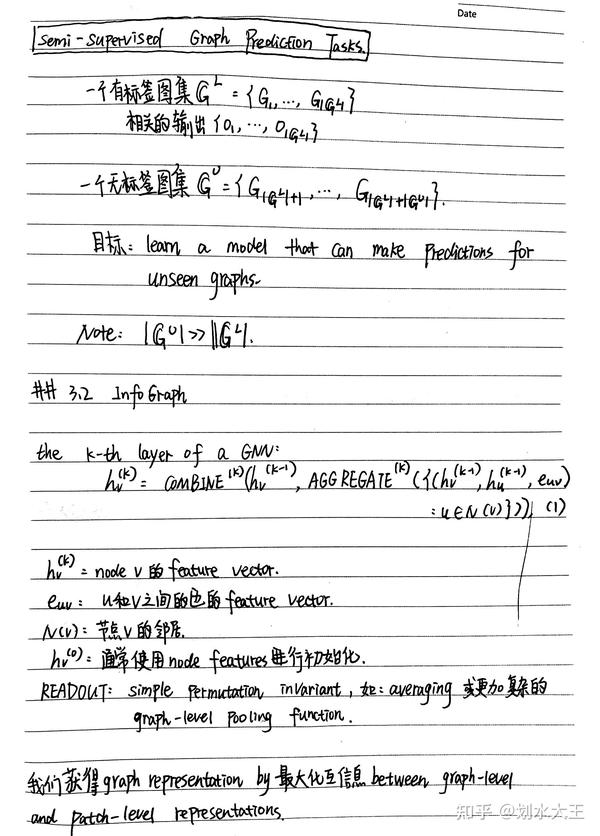 Date
Semi-supervised Graph Prediction Tasks.
一个有标签图集 𝔾^L = {G_1, ..., G_|𝔾^L|}
相关的输出 {O_1, ..., O_|𝔾^L|}
一个无标签图集 𝔾^U = {G_|𝔾^L|+1, ..., G_|𝔾^L|+|𝔾^U|}.
目标: learn a model that can make predictions for
unseen graphs.
Note: |𝔾^U| >> |𝔾^L|.
## 3.2 InfoGraph
the k-th layer of a GNN:
h_v^(k) = COMBINE^(k)(h_v^(k-1), AGGREGATE^(k)({(h_v^(k-1), h_u^(k-1), e_uv)
: u∈N(v)})), (1)
h_v^(k) = node v 的 feature vector.
e_uv: u和v之间的边的 feature vector.
N(v): 节点v的邻居.
h_v^(0): 通常使用node features进行初始化.
READOUT: simple permutation invariant, 如: averaging 或更加复杂的
graph-level pooling function.
我们获得graph representation by 最大化互信息 between graph-level
and patch-level representations.
知乎 @划水大王